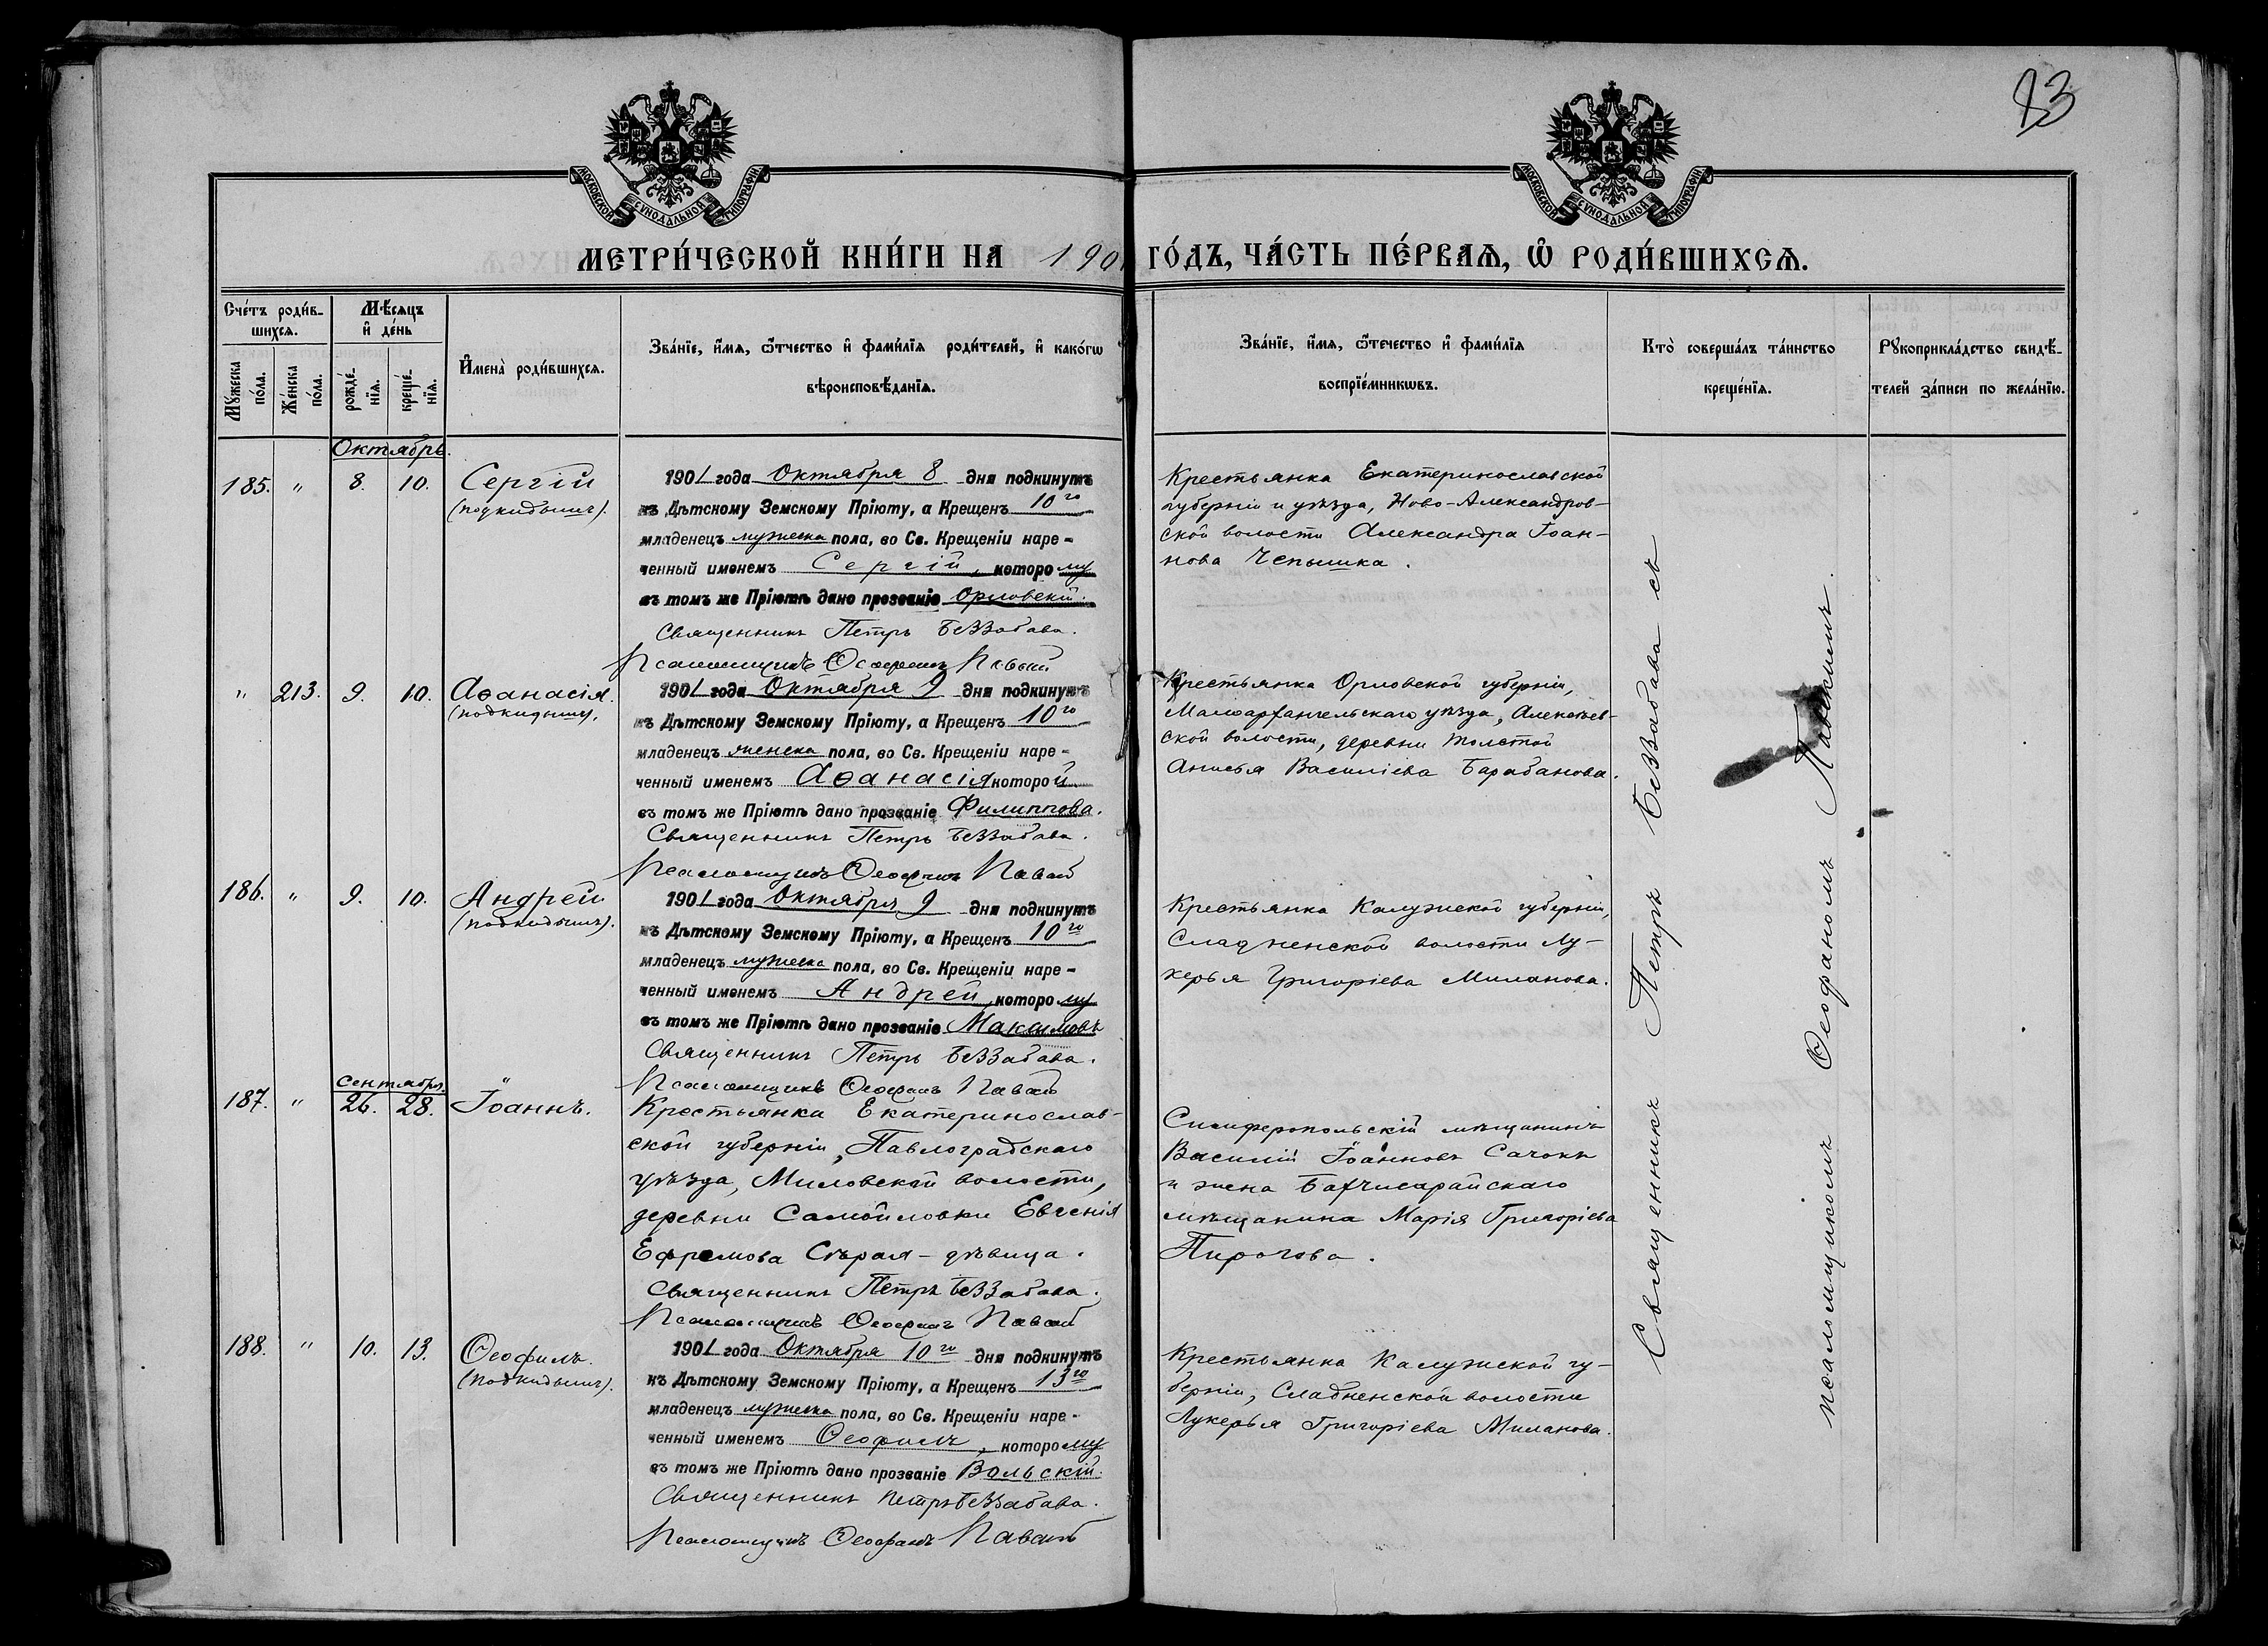 83
МОСКОВСКОЙ СѴНОДАЛЬНОЙ ТИПОГРАФІИ
МОСКОВСКОЙ СѴНОДАЛЬНОЙ ТИПОГРАФІИ
МЕТРИ́ЧЕСКОЙ КНИ́ГИ НА 1901 ГО́ДЪ, ЧА́СТЬ ПЕ́РВАѦ, Ѽ РОДИ́ВШИХСѦ.
Сче́тъ роди́в-
шихсѧ.
Мꙋ́жеска по́ла.
Же́нска по́ла.
Мѣ́сѧцъ
и҆ де́нь
рожде́-
нїѧ.
креще́-
нїѧ.
И҆мена̀ роди́вшихсѧ.
Зва́нїе, и҆́мѧ, ѻ҆́тчество и҆ фами́лїѧ роди́телей, и҆ како́гѡ
вѣроисповѣ́данїѧ.
Зва́нїе, и҆́мѧ, ѻ҆те́чество и҆ фами́лїѧ
воспрїе́мникѡвъ.
Кто̀ соверша́лъ та́инство
креще́нїѧ.
Рꙋкоприкла́дство свидѣ́-
телей за́писи по жела́нїю.
Октябрь.
185. " 8. 10. Сергій
(подкидышъ).
1901 года Октября 8 дня подкинутъ
къ Дѣтскому Земскому Пріюту, а Крещенъ 10го
младенецъ мужеска пола, во Св. Крещеніи наре-
ченный именемъ Сергій, которому
въ томъ же Пріютѣ дано прозваніе Орловскій.
Священникъ Петръ Беззабава.
Псаломщикъ Ѳеофанъ Павкій
Крестьянка Екатеринославской
губерніи и уѣзда, Ново-Александров-
ской волости Александра Іоан-
нова Чепышка.
" 213. 9. 10. Аѳанасія.
(подкидышъ).
1901 года Октября 9 дня подкинутъ
къ Дѣтскому Земскому Пріюту, а Крещенъ 10го
младенецъ женска пола, во Св. Крещеніи наре-
ченный именемъ Аѳанасія которой
въ томъ же Пріютѣ дано прозваніе Филиппова.
Священникъ Петръ Беззабава.
Псаломщикъ Ѳеофанъ
Крестьянка Орловской губерніи,
Малоархангельскаго уѣзда, Алексѣев-
ской волости, деревни Толстой
Анисья Василіева Барабанова.
186. " 9. 10. Андрей
(подкидышъ).
1901 года Октября 9 дня подкинутъ
къ Дѣтскому Земскому Пріюту, а Крещенъ 10го
младенецъ мужеска пола, во Св. Крещеніи наре-
ченный именемъ Андрей, которому
въ томъ же Пріютѣ дано прозваніе Максимовъ
Священникъ Петръ Беззабава.
Псаломщикъ Ѳеофанъ
Крестьянка Калужской губерніи,
волости Лу-
керья Григоріева Миланова.
Сентябрь.
187. " 26. 28. Іоаннъ.
Крестьянка Екатеринослав-
ской губерніи, Павлоградскаго
уѣзда, Миловской волости,
деревни Самойловки Евгенія
Ефремова Сѣрая - дѣвица.
Священникъ Петръ Беззабава.
Псаломщикъ Ѳеофанъ
Симферопольскій мѣщанинъ
Василій Іоанновъ Сачокъ
и жена Бахчисарайскаго
мѣщанина Марія Григоріева
Пирогова.
188. " 10. 13. Ѳеофилъ.
(подкидышъ).
1901 года Октября 10го дня подкинутъ
къ Дѣтскому Земскому Пріюту, а Крещенъ 13го
младенецъ мужеска пола, во Св. Крещеніи наре-
ченный именемъ Ѳеофилъ, которому
въ томъ же Пріютѣ дано прозваніе Вольскій.
Священникъ Петръ Беззабава.
Псаломщикъ Ѳеофанъ
Крестьянка Калужской гу-
берніи, волости
Лукерья Григоріева Миланова.
Священникъ Петръ Беззабава съ
псаломщикомъ Ѳеофаномъ